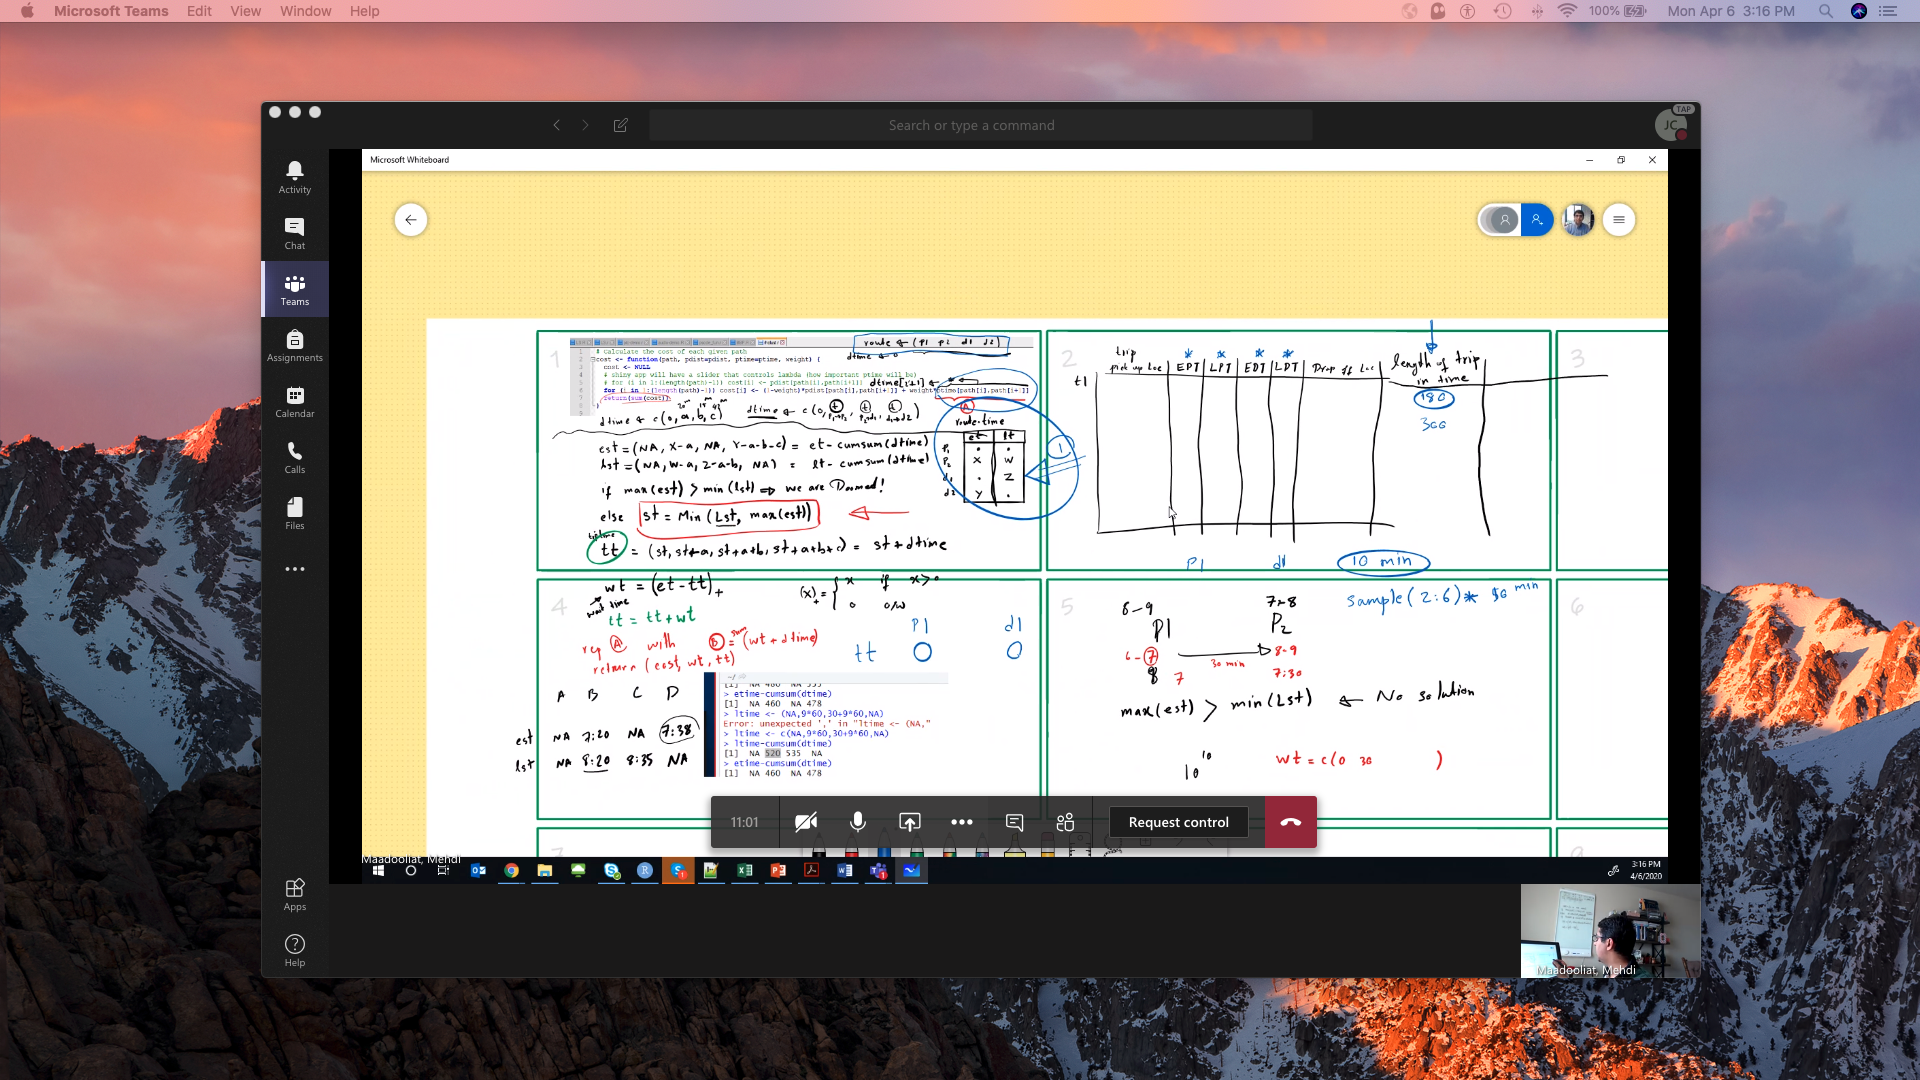 Microsoft Teams Edit View Window Help
100% Mon Apr 6 3:16 PM
Search or type a command
TAP
JC
Activity
Chat
Teams
Assignments
Calendar
Calls
Files
Apps
Help
Microsoft Whiteboard
1
route ← (P1 P2 d1 d2)
dtime ← 0
# calculate the cost of each given path
cost <- function(path, pdist=pdist, ptime=ptime, weight) {
cost <- NULL
# shiny app will have a slider that controls lambda (how important ptime will be)
# for (i in 1:(length(path)-1)) cost[i] <- pdist[path[i],path[i+1]]
dtime[i+1] ←
for (i in 1:(length(path)-1)) cost[i] <- (1-weight)*pdist[path[i],path[i+1]] + weight*ptime[path[i],path[i+1]]
return(sum(cost))
A
dtime ← c(0, a, b, c)
dtime ← c(0, t, t, t)
P1→P2, P2→d1, d1→d2
route-time
et lt
P1 . .
P2 X W
d1 . Z
d2 Y .
1
est = (NA, X-a, NA, Y-a-b-c) = et - cumsum(dtime)
lst = (NA, W-a, Z-a-b, NA) = lt - cumsum(dtime)
if max(est) > min(lst) ⇒ we are Doomed!
else st = Min (Lst, max(est))
tt = (st, st+a, st+a+b, st+a+b+c) = st + dtime
2
trip
pick up Loc EPT LPT EDT LDT Drop off Loc
length of trip
in time
t1
180
300
P1 d1 10 min
3
4
wt = (et-tt)+
wait time
(x)+ = { x if x>0
0 o/w
tt = tt + wt
rep A with B = sum (wt + dtime)
return (cost, wt, tt)
P1 d1
tt O O
A B C D
est NA 7:20 NA 7:38
lst NA 8:20 8:35 NA
[1] NA 480 NA 535
> etime-cumsum(dtime)
[1] NA 460 NA 478
> ltime <- (NA,9*60,30+9*60,NA)
Error: unexpected ',' in "ltime <- (NA,"
> ltime <- c(NA,9*60,30+9*60,NA)
> ltime-cumsum(dtime)
[1] NA 520 535 NA
> etime-cumsum(dtime)
[1] NA 460 NA 478
5
8-9
P1
7-8
P2
sample(2:6)*
min
6-7
8 7
30 min
8-9
7:30
max(est) > min(Lst) ← No solution
10 10
wt = c(0 30 )
6
7
11:01
Request control
Maadooliat, Mehdi
3:16 PM
4/6/2020
Maadooliat, Mehdi